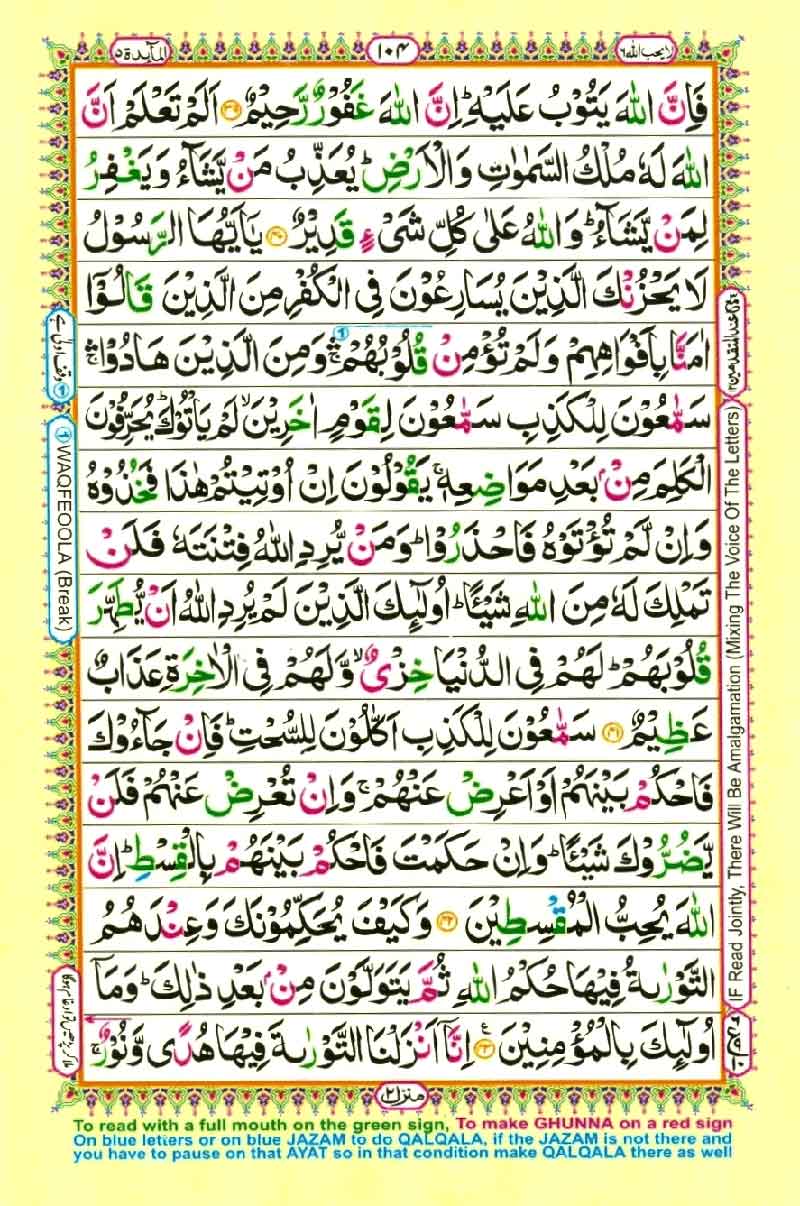 المآئدة ٥
١٠٤
لا یحب الله ٦
فَاِنَّ اللّٰهَ یَتُوْبُ عَلَیْهِؕ اِنَّ اللّٰهَ غَفُوْرٌ رَّحِیْمٌ ۝۳۹ اَلَمْ تَعْلَمْ اَنَّ
اللّٰهَ لَهٗ مُلْكُ السَّمٰوٰتِ وَالْاَرْضِؕ یُعَذِّبُ مَنْ یَّشَآءُ وَیَغْفِرُ
لِمَنْ یَّشَآءُؕ وَاللّٰهُ عَلٰی كُلِّ شَیْءٍ قَدِیْرٌ ۝۴۰ یٰۤاَیُّهَا الرَّسُوْلُ
لَا یَحْزُنْكَ الَّذِیْنَ یُسَارِعُوْنَ فِی الْكُفْرِ مِنَ الَّذِیْنَ قَالُوْۤا
اٰمَنَّا بِاَفْوَاهِهِمْ وَلَمْ تُؤْمِنْ قُلُوْبُهُمْ ۛۚ وَمِنَ الَّذِیْنَ هَادُوْا ۛۚ
سَمّٰعُوْنَ لِلْكَذِبِ سَمّٰعُوْنَ لِقَوْمٍ اٰخَرِیْنَ ۙ لَمْ یَاْتُوْكَؕ یُحَرِّفُوْنَ
الْكَلِمَ مِنْۢ بَعْدِ مَوَاضِعِهٖۚ یَقُوْلُوْنَ اِنْ اُوْتِیْتُمْ هٰذَا فَخُذُوْهُ
وَاِنْ لَّمْ تُؤْتَوْهُ فَاحْذَرُوْاؕ وَمَنْ یُّرِدِ اللّٰهُ فِتْنَتَهٗ فَلَنْ
تَمْلِكَ لَهٗ مِنَ اللّٰهِ شَیْـًٔاؕ اُولٰٓىِٕكَ الَّذِیْنَ لَمْ یُرِدِ اللّٰهُ اَنْ یُّطَهِّرَ
قُلُوْبَهُمْؕ لَهُمْ فِی الدُّنْیَا خِزْیٌ ۙ وَّلَهُمْ فِی الْاٰخِرَةِ عَذَابٌ
عَظِیْمٌ ۝۴۱ سَمّٰعُوْنَ لِلْكَذِبِ اَكّٰلُوْنَ لِلسُّحْتِؕ فَاِنْ جَآءُوْكَ
فَاحْكُمْ بَیْنَهُمْ اَوْ اَعْرِضْ عَنْهُمْۚ وَاِنْ تُعْرِضْ عَنْهُمْ فَلَنْ
یَّضُرُّوْكَ شَیْـًٔاؕ وَاِنْ حَكَمْتَ فَاحْكُمْ بَیْنَهُمْ بِالْقِسْطِؕ اِنَّ
اللّٰهَ یُحِبُّ الْمُقْسِطِیْنَ ۝۴۲ وَكَیْفَ یُحَكِّمُوْنَكَ وَعِنْدَهُمُ
التَّوْرٰىةُ فِیْهَا حُكْمُ اللّٰهِ ثُمَّ یَتَوَلَّوْنَ مِنْۢ بَعْدِ ذٰلِكَؕ وَمَاۤ
اُولٰٓىِٕكَ بِالْمُؤْمِنِیْنَ ۝۴۳ اِنَّاۤ اَنْزَلْنَا التَّوْرٰىةَ فِیْهَا هُدًی وَّنُوْرٌۚ
وقف اولیٰ ہے
WAQFEOOLA (Break)
IF Read Jointly, There Will Be Amalgamation (Mixing The Voice Of The Letters)
منزل ٢
To read with a full mouth on the green sign, To make GHUNNA on a red sign
On blue letters or on blue JAZAM to do QALQALA, if the JAZAM is not there and
you have to pause on that AYAT so in that condition make QALQALA there as well